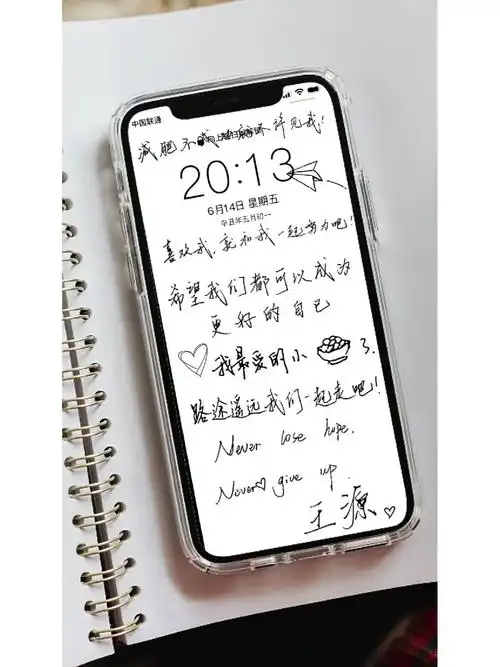 中国联通
减肥不成 别来见我!
20:13
6月14日 星期五
辛丑年五月初一
喜欢我,就和我一起努力吧!
希望我们都可以成为
更好的自己
我最爱的小 了.
路途遥远我们一起走吧!!
Never lose hope.
Never give up
王源